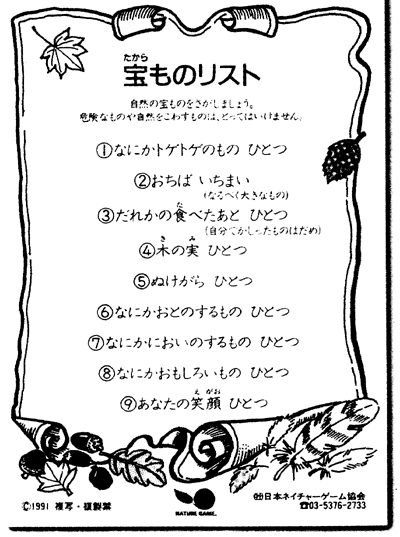 たから
宝ものリスト
自然の宝ものをさがしましょう。
危険なものや自然をこわすものは、とってはいけません。
①なにかトゲトゲのもの ひとつ
②おちば いちまい
(なるべく大きなもの)
た
③だれかの食べたあと ひとつ
(自分でかじったものはだめ)
き み
④木の実 ひとつ
⑤ぬけがら ひとつ
⑥なにかおとのするもの ひとつ
⑦なにかにおいのするもの ひとつ
⑧なにかおもしろいもの ひとつ
えがお
⑨あなたの笑顔 ひとつ
©1991 複写・複製禁
NATURE GAME.
㈳日本ネイチャーゲーム協会
☎03-5376-2733